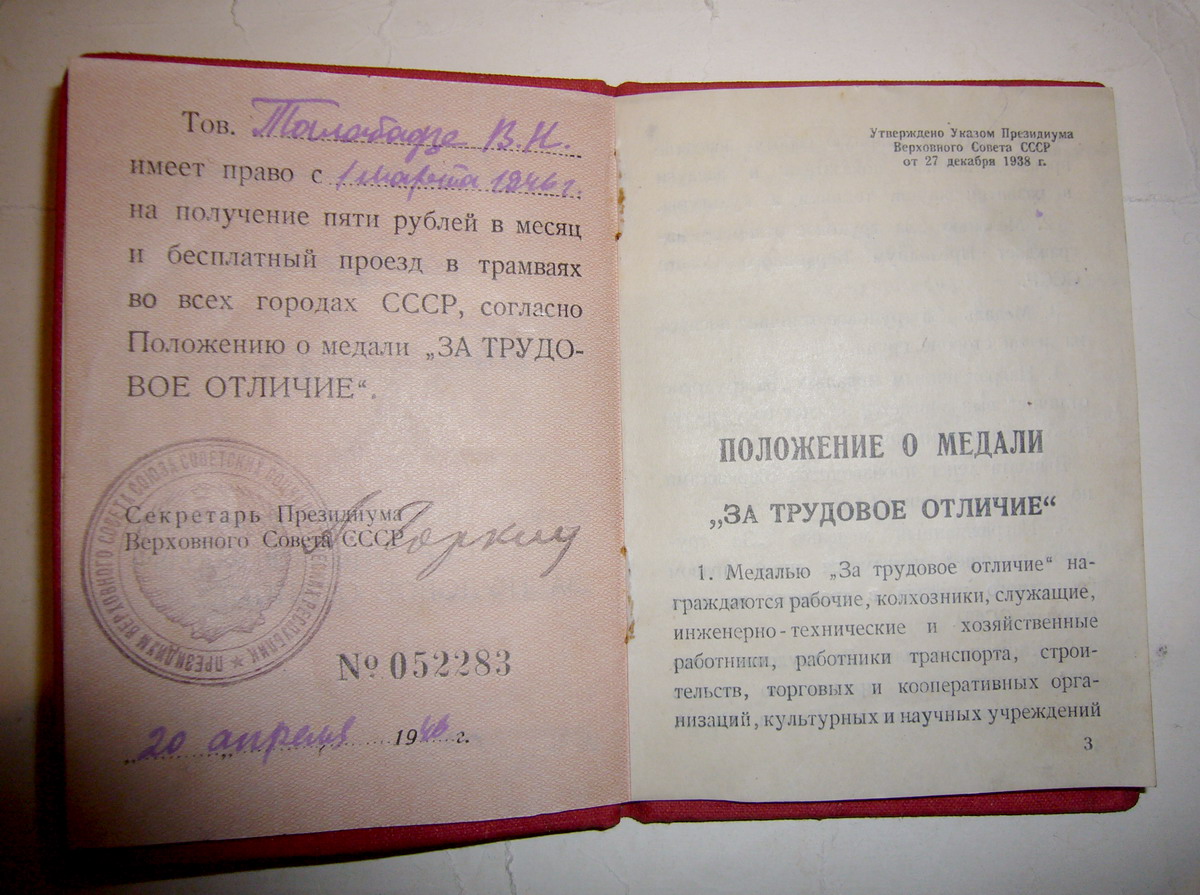 Тов. Талабадзе В.Н.
имеет право с 1 марта 1946 г.
на получение пяти рублей в месяц
и бесплатный проезд в трамваях
во всех городах СССР, согласно
Положению о медали „ЗА ТРУДО-
ВОЕ ОТЛИЧИЕ“.
Секретарь Президиума
Верховного Совета СССР
А Горкин
ПРЕЗИДИУМ ВЕРХОВНОГО СОВЕТА СОЮЗА СОВЕТСКИХ СОЦИАЛИСТИЧЕСКИХ РЕСПУБЛИК
№ 052283
20 апреля 1946 г.
Утверждено Указом Президиума
Верховного Совета СССР
от 27 декабря 1938 г.
ПОЛОЖЕНИЕ О МЕДАЛИ
„ЗА ТРУДОВОЕ ОТЛИЧИЕ“
1. Медалью „За трудовое отличие“ на-
граждаются рабочие, колхозники, служащие,
инженерно-технические и хозяйственные
работники, работники транспорта, строи-
тельств, торговых и кооперативных орга-
низаций, культурных и научных учреждений
3